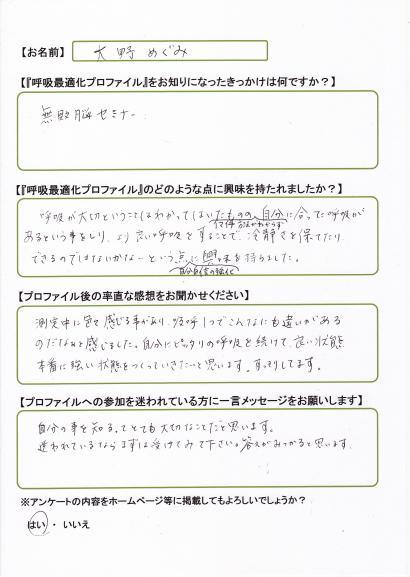 【お名前】 大野めぐみ
【『呼吸最適化プロファイル』をお知りになったきっかけは何ですか？】
無敗脳セミナー
【『呼吸最適化プロファイル』のどのような点に興味を持たれましたか？】
呼吸が大切ということはわかってはいたものの、自分に合った呼吸が
あるという事をしり、より良い呼吸をすることで、冷静さを保てたり、
できるのではないかな〜という点に興味を持ちました。
自分自信の強化
【プロファイル後の率直な感想をお聞かせください】
測定中に色々感じる事があり、呼吸1つでこんなにも違いがある
のだなぁと感じました。自分にピッタリの呼吸を続けて、良い状態
本番に強い状態をつくっていきたいと思います。すっきりしてます。
【プロファイルへの参加を迷われている方に一言メッセージをお願いします】
自分の事を知る、とても大切なことだと思います。
迷われているならまずは受けてみて下さい。答えがみつかると思います。
※アンケートの内容をホームページ等に掲載してもよろしいでしょうか？
はい ・ いいえ